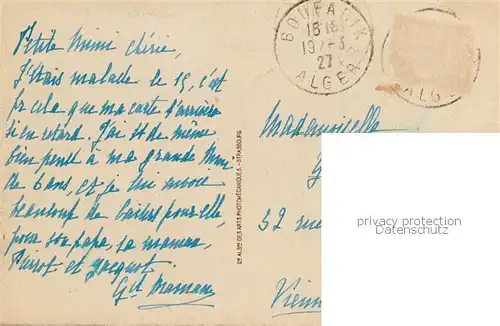 Petite Mimi chérie,
J'étais malade le 15, c'est
pr cela que ma carte t'arrivera
si en retard. J'ai tt de même
bien pensé à ma grande Mimi
de 6 ans, et je lui envoie
beaucoup de baisers pour elle,
pour son papa, sa maman,
Pierrot et Jacquot.
Gd Maman
BOUFARIK
19
27
ALGER
ALG
ALSNE DES ARTS PHOTOMÉCANIQUES. - STRASBOURG
Mademoiselle
52 rue
Vienn
privacy protection
Datenschutz